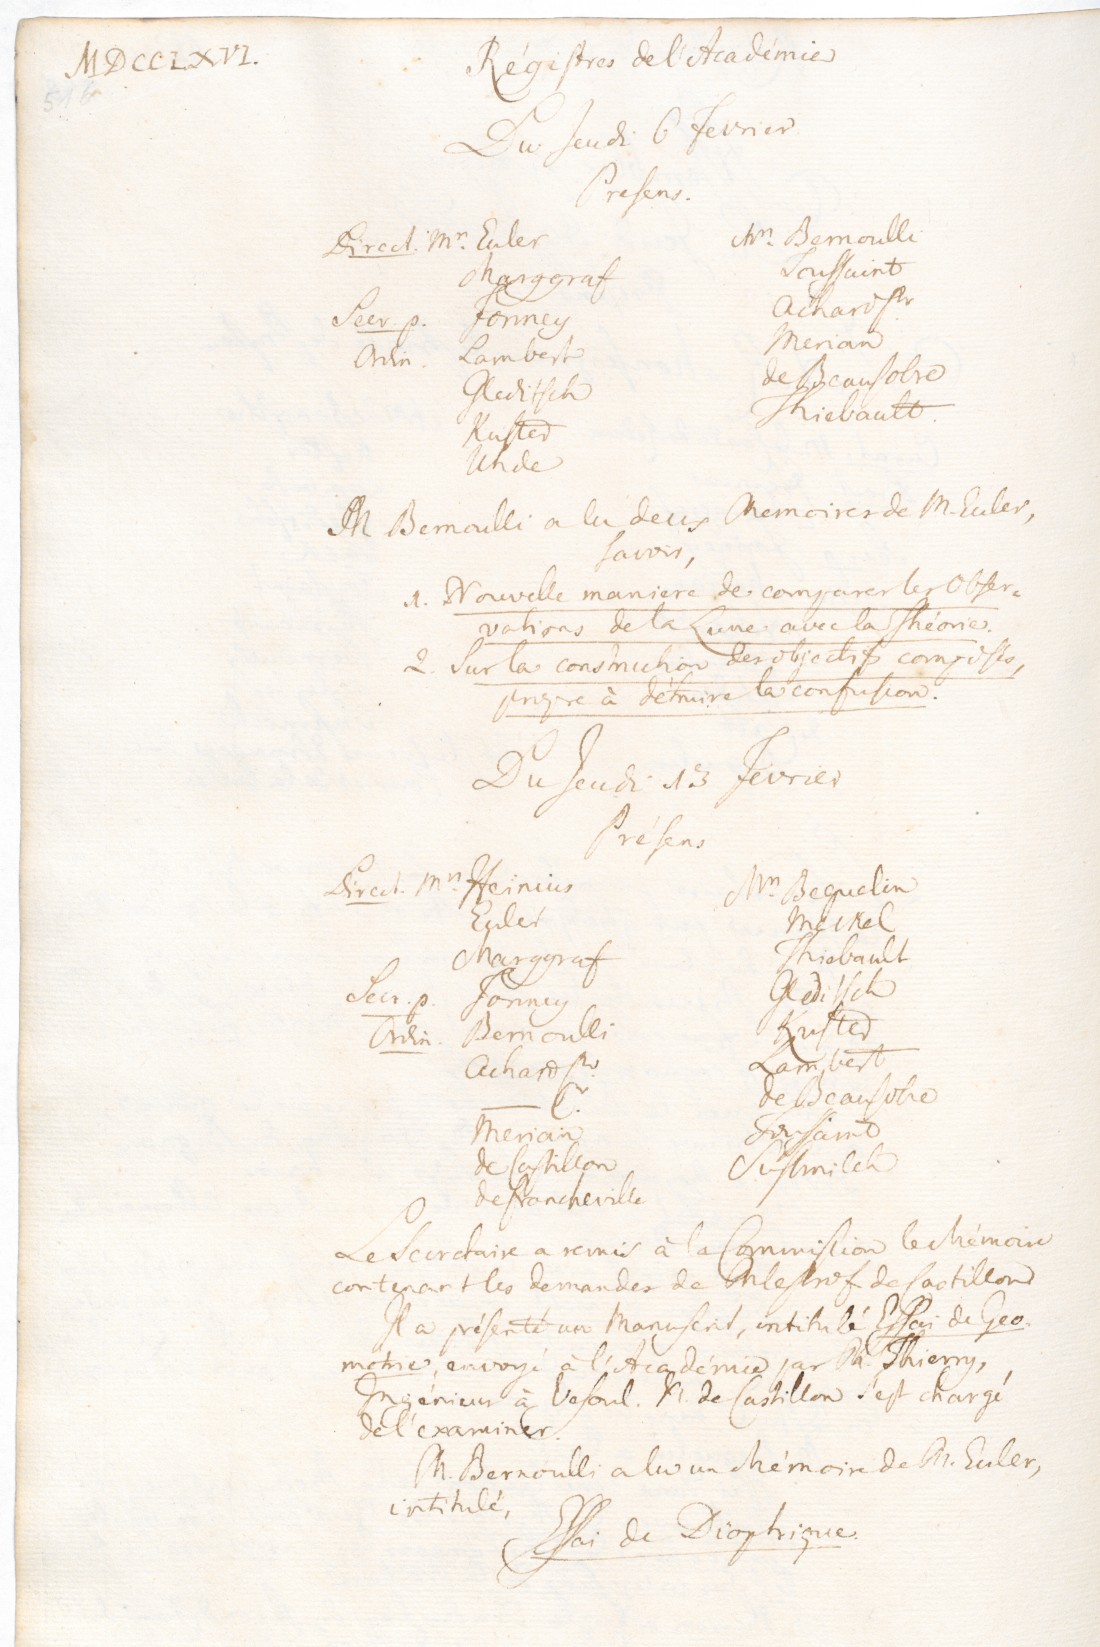 MDCCLXVI.
Régistres de l'Académie
Du Jeudi 6 Fevrier
Presens.
Direct. Mrs. Euler
Marggraf
Secr. p. Formey
Ordin. Lambert
Gleditsch
Kuster
Uhde
Mrs. Bernoulli
Toussaint
Achard Sr
Merian
de Beausobre
Thiebault.
M Bernoulli a lu deux Memoires de M. Euler,
savoir,
1. Nouvelle maniere de comparer les Obser-
vations de la Lune avec la Théorie.
2. Sur la construction des objectifs composés,
propre à détruire la confusion.
Du Jeudi 13 Fevrier
Présens
Direct. Mrs. Heinius
Euler
Marggraf
Secr. p. Formey
Ordin. Bernoulli
Achard Sr.
— Cr.
Merian
de Castillon
de Francheville
Mrs. Beguelin
Meckel
Thiebault
Gleditsch
Kuster
Lambert
de Beausobre
Toussaint
Süsmilch
Le Secretaire a remis à la Commission le Mémoire
contenant les demandes de M le Prof. de Castillon
Il a présenté un Manuscrit, intitulé Essai de Geo-
metrie, envoyé à l'Académie par M. Thierry,
Ingénieur à Vesoul. M. de Castillon s'est chargé
de l'examiner.
M. Bernoulli a lu un Mémoire de M. Euler,
intitulé,
Essai de Dioptrique.